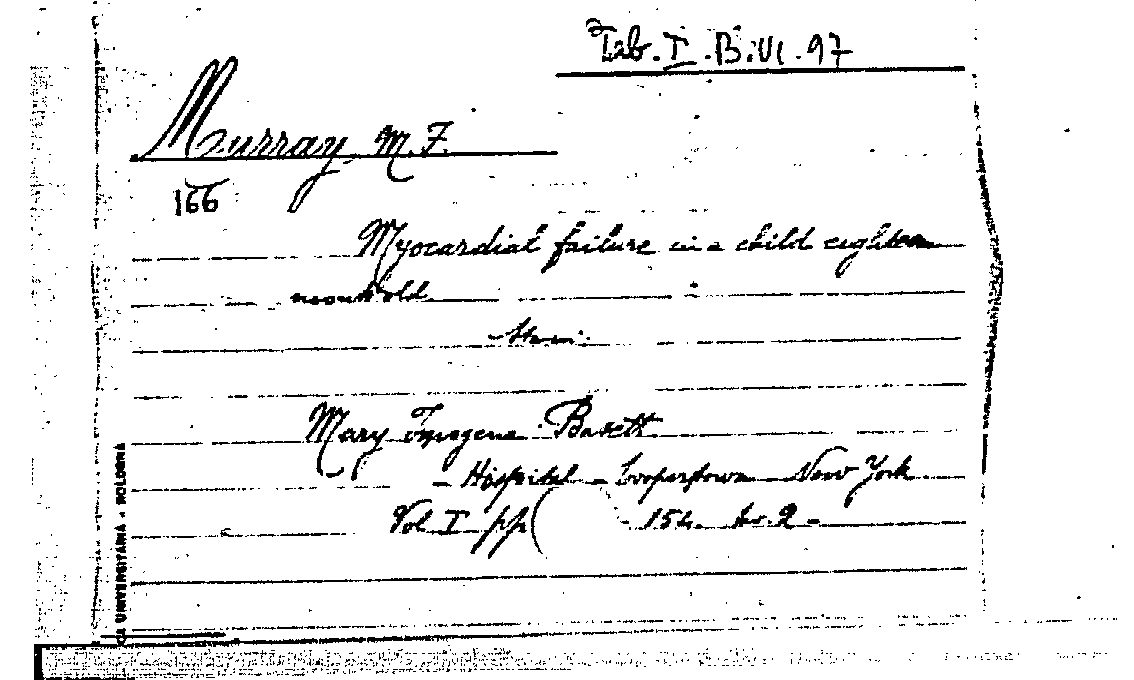 Tab. I. B. VI. 97
Murray, M. F.
166
Myocardial failure in a child eighteen
months old
Mary Imogene Basett
- Hospital - Cooperstown New York
Vol I pp ( 154.
CA UNIVERSITARIA • BOLOGNA